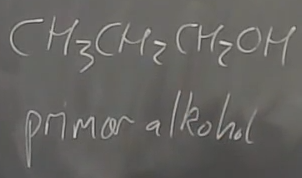 CH3CH2CH2OH
primær alkohol